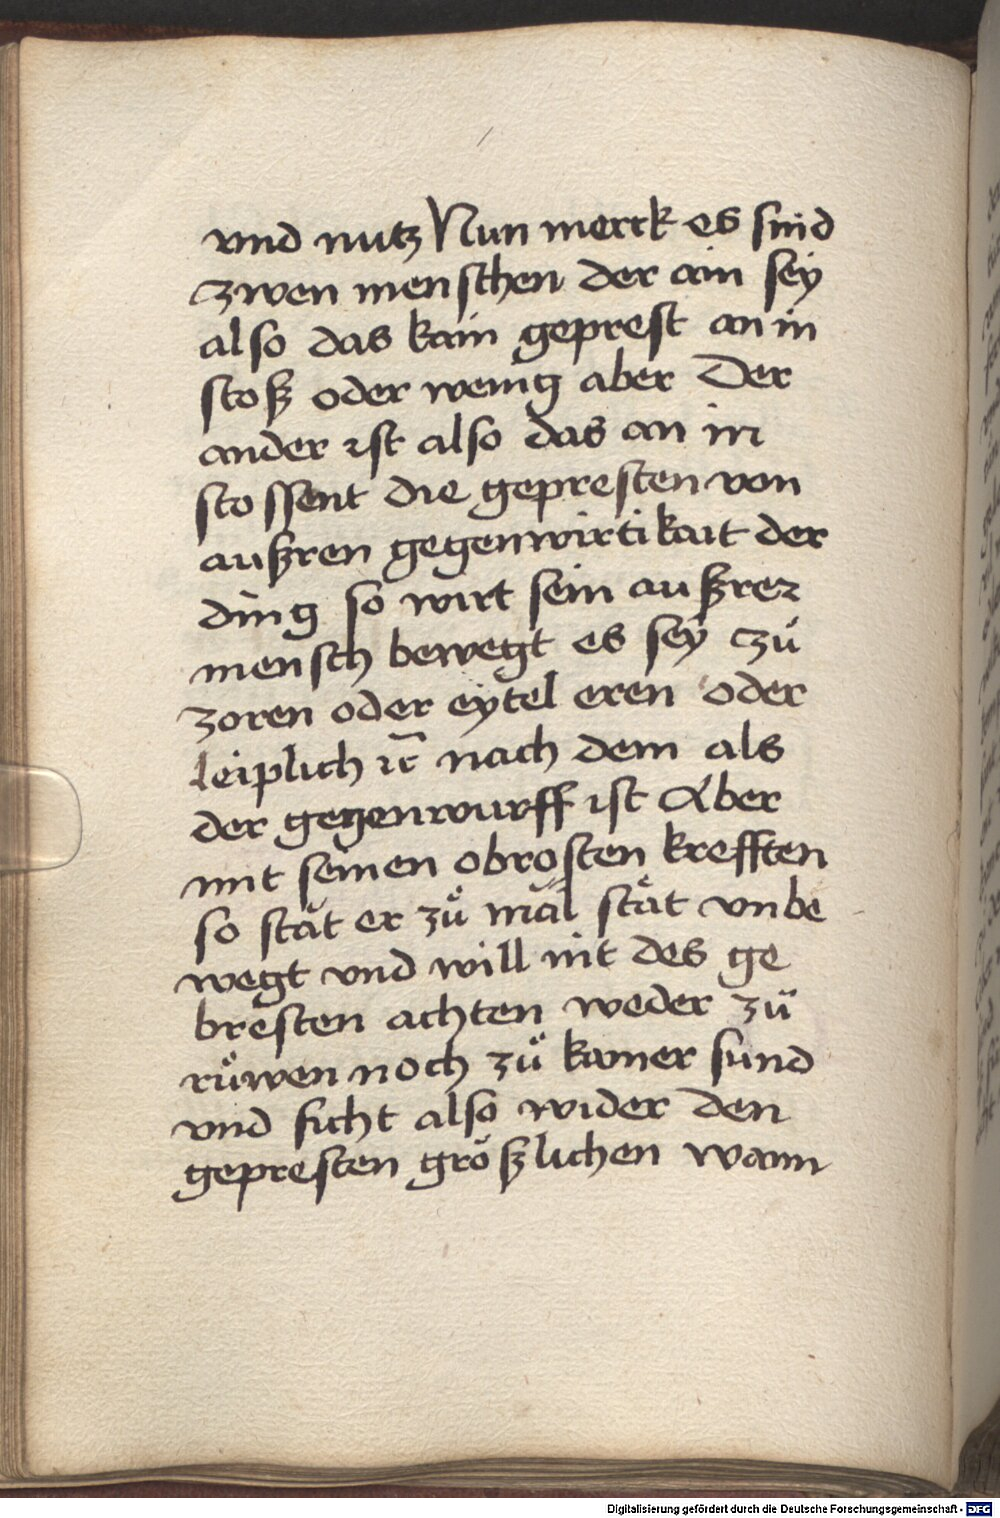 vnd nutz Nun merck es sind
zwen menschen der ain sey
also das kain geprest an in
stosz oder wenig aber Der
ander ist also das an in
stossent die gepresten von
auszren gegenwirtikait der
ding so wirt sein auszrer
mensch bewegt es sey zů
zoren oder eytel eren oder
leiplich ꝛc̄ nach dem als
der gegenwurff ist Aber
mit seinen obrosten krefften
so stät er zů mäl stät vnbe
wegt vnd will nit des ge
bresten achten weder zů
růwen noch zů kainer sund
vnd ficht also wider den
gepresten gröszlichen wann
Digitalisierung gefördert durch die Deutsche Forschungsgemeinschaft - DFG